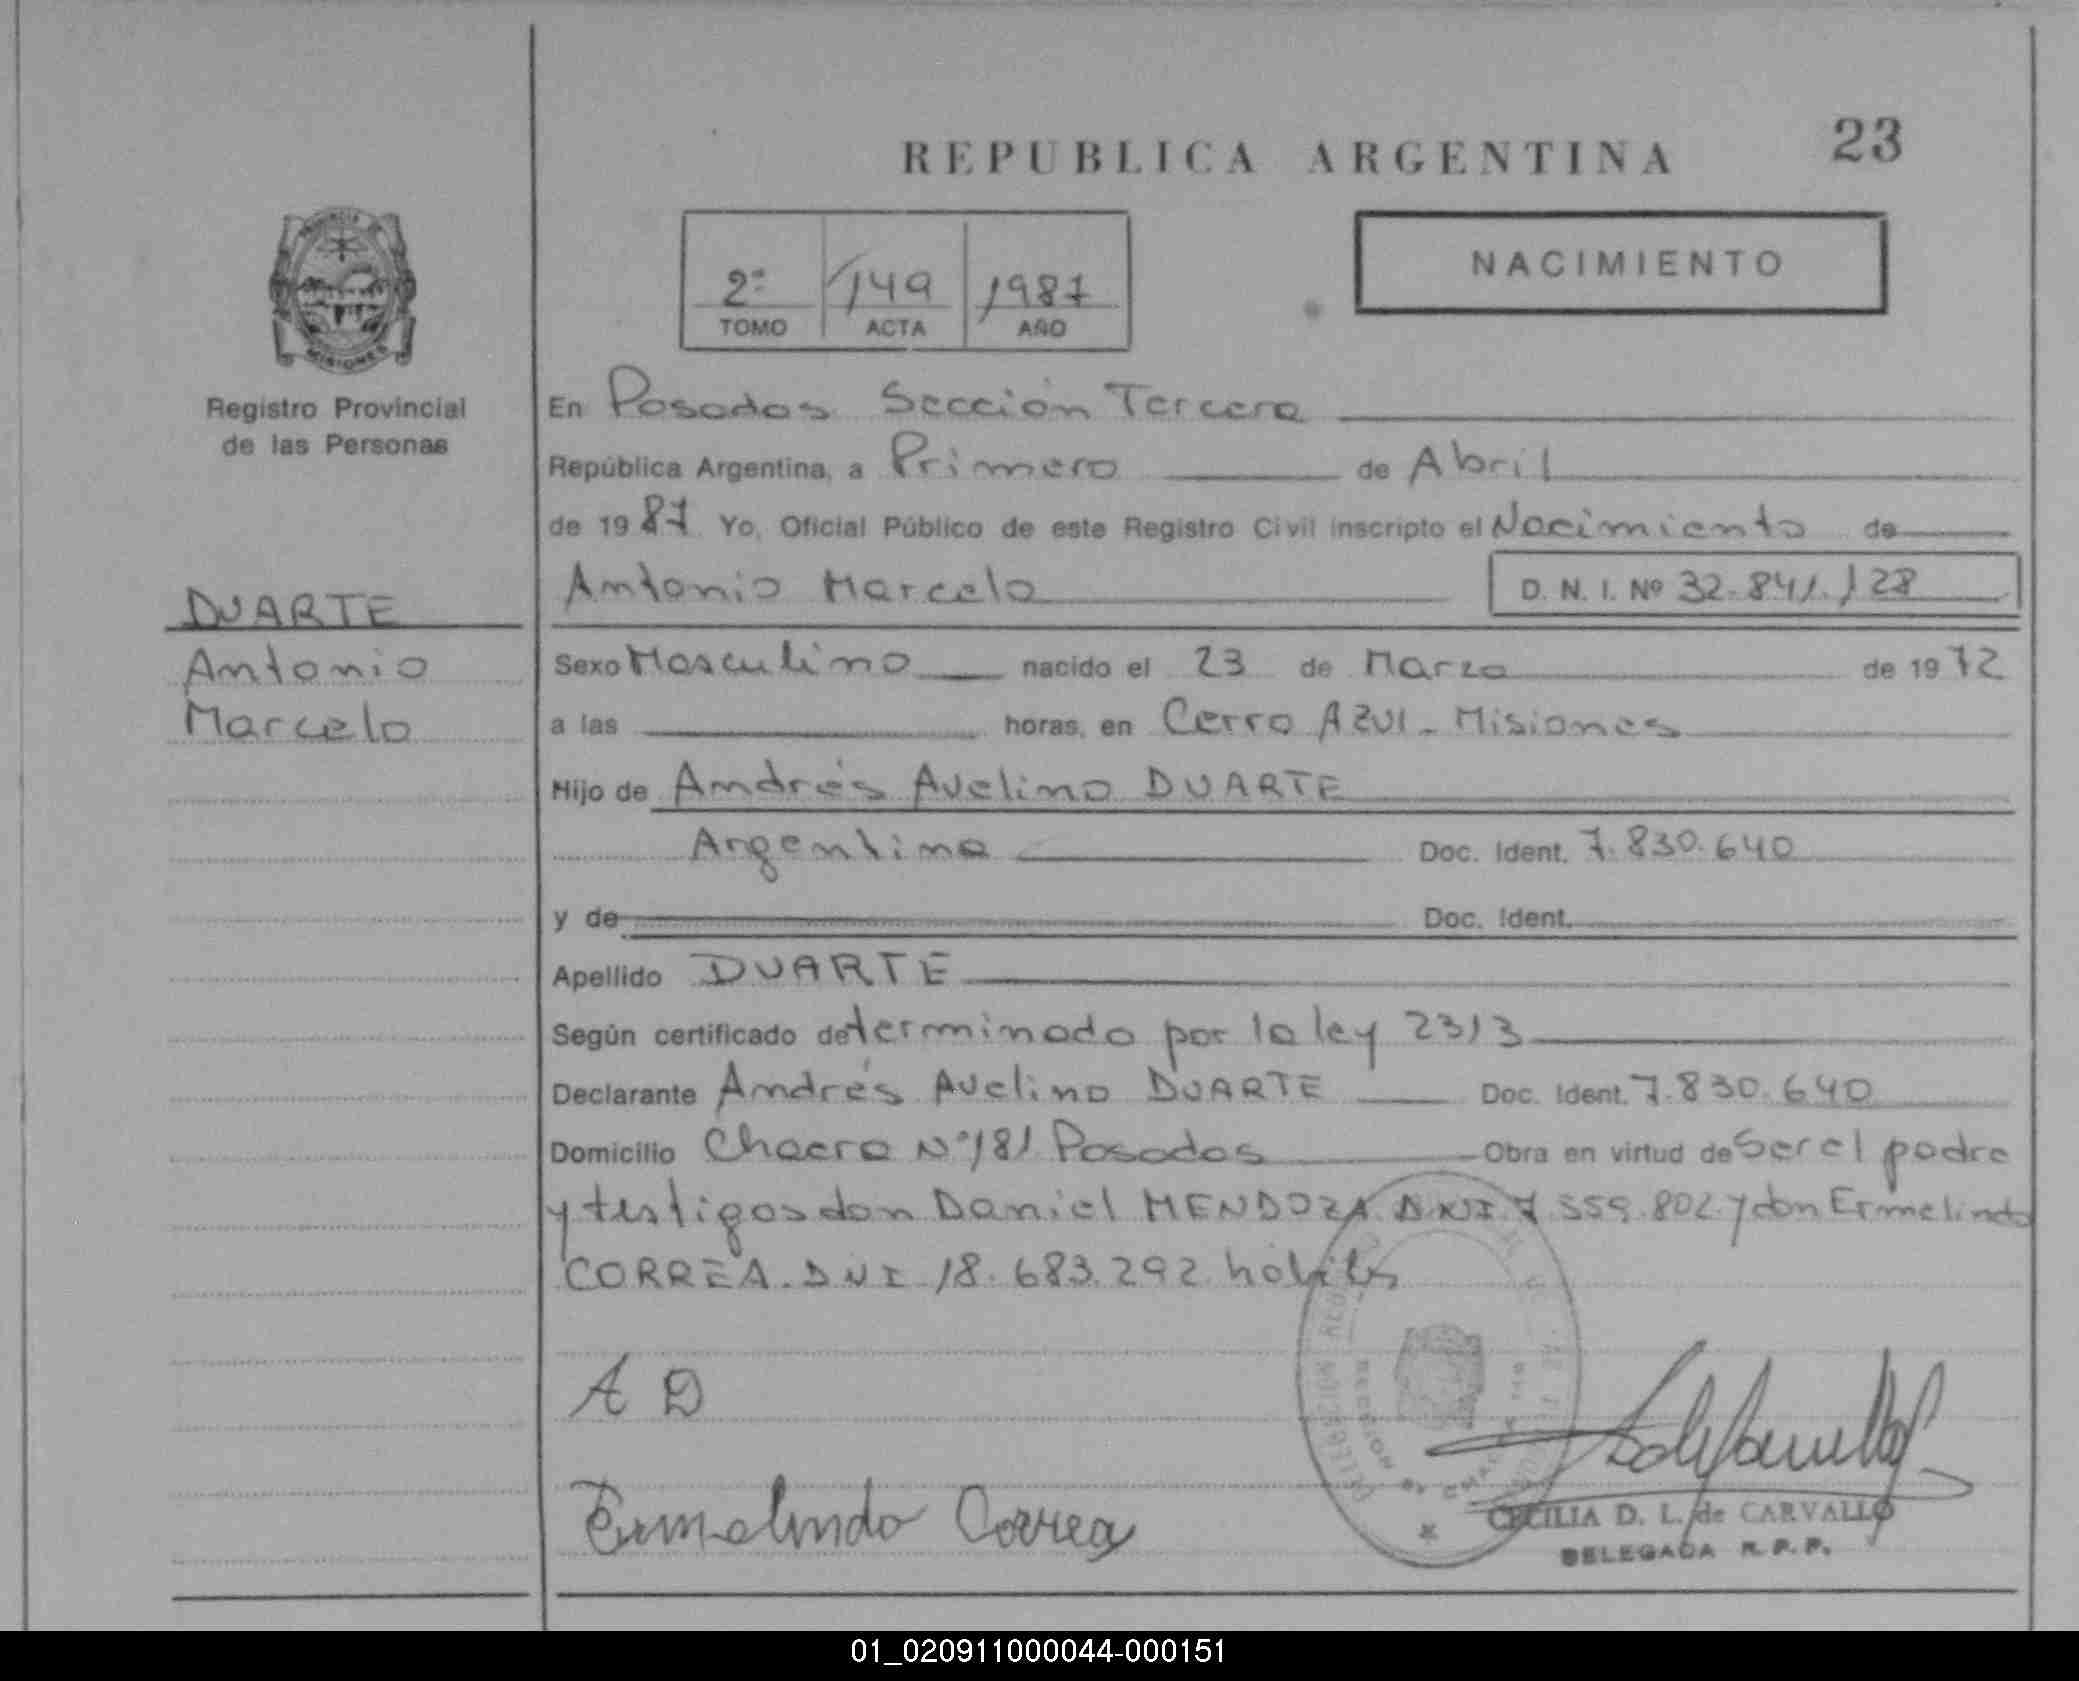 REPUBLICA ARGENTINA
23
NACIMIENTO
2º /149 1987
TOMO ACTA AÑO
MISIONES
Registro Provincial
de las Personas
DUARTE
Antonio
Marcelo
En Posadas Sección Tercera
República Argentina, a Primero de Abril
de 1987 Yo, Oficial Público de este Registro Civil inscripto el Nacimiento de
Antonio Marcelo D. N. I. Nº 32.841.128
Sexo Masculino nacido el 23 de Marzo de 1972
a las horas, en Cerro AZUL - Misiones
Hijo de Andrés Avelino DUARTE
Argentino Doc. Ident. 7.830.640
y de Doc. Ident.
Apellido DUARTE
Según certificado determinado por la ley 2313
Declarante Andrés Avelino DUARTE Doc. Ident. 7.830.640
Domicilio Chacra Nº 181 Posadas Obra en virtud de Ser el padre
y testigos don Daniel MENDOZA DNI 7.559.802 y don Ermelindo
CORREA. DNI 18.683.292 hábiles
A D
Ermelindo Correa
CECILIA D. L. de CARVALLO
DELEGADA R. P. P.
01_020911000044-000151